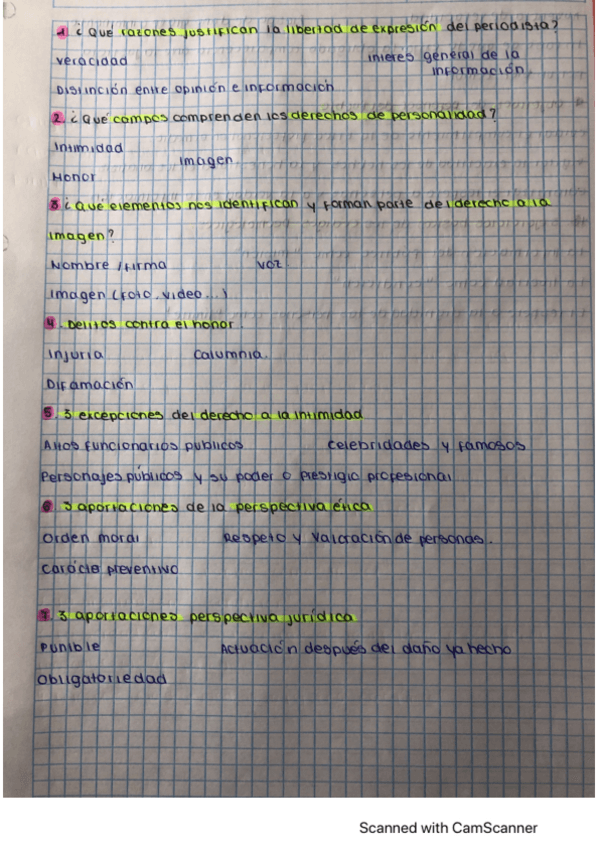 1. ¿Qué razones justifican la libertad de expresión del periodista?
Veracidad interes general de la información
Distinción entre opinión e información
2. ¿Qué campos comprenden los derechos de personalidad?
Intimidad
Imagen
Honor
3 ¿Qué elementos nos identifican y forman parte del derecho a la
imagen?
Nombre /firma voz
Imagen (foto, video...)
4. Delitos contra el honor.
Injuria Calumnia.
Difamación
5. 3 excepciones del derecho a la intimidad
Altos funcionarios públicos Celebridades y famosos
Personajes públicos y su poder o prestigio profesional
6 3 aportaciones de la perspectiva ética
Orden moral Respeto y valoración de personas.
Carácter preventivo
7. 3 aportaciones perspectiva jurídica
Punible Actuación después del daño ya hecho
Obligatoriedad
Scanned with CamScanner